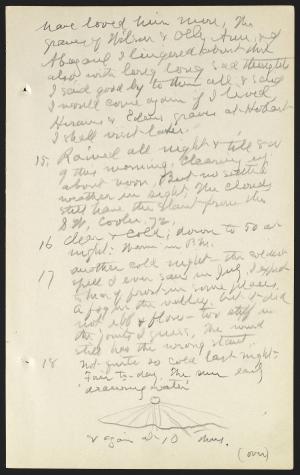 have loved him more, The
graves of Wilson & Olly Ann, and
Abigail I lingered about them
also with long, long sad thoughts
I said good by to them all & said
I would come again if I lived
Hiram's & Eden's graves at Hobart
I shall visit later.
15, Rained all night & till 8 or
9 this morning. Clearing up
about noon. But no settled
weather in sight. The clouds
still have the slant from the
S.W. Cooler, 72,
16 Clear & Cold; down to 50 at
night. Warm in P.M.
17 another cold night - the coldest
spell I ever saw in July, I expect
to hear of frost in some places.
A fog in the valley, but it did
not ebb & flow - too stiff in
the joints I guess, The wind
still has the wrong slant.
18 Not quite so cold last night.
Fair to-day, The sun early
'drawing water'
& again at 10 hrs.
(over)